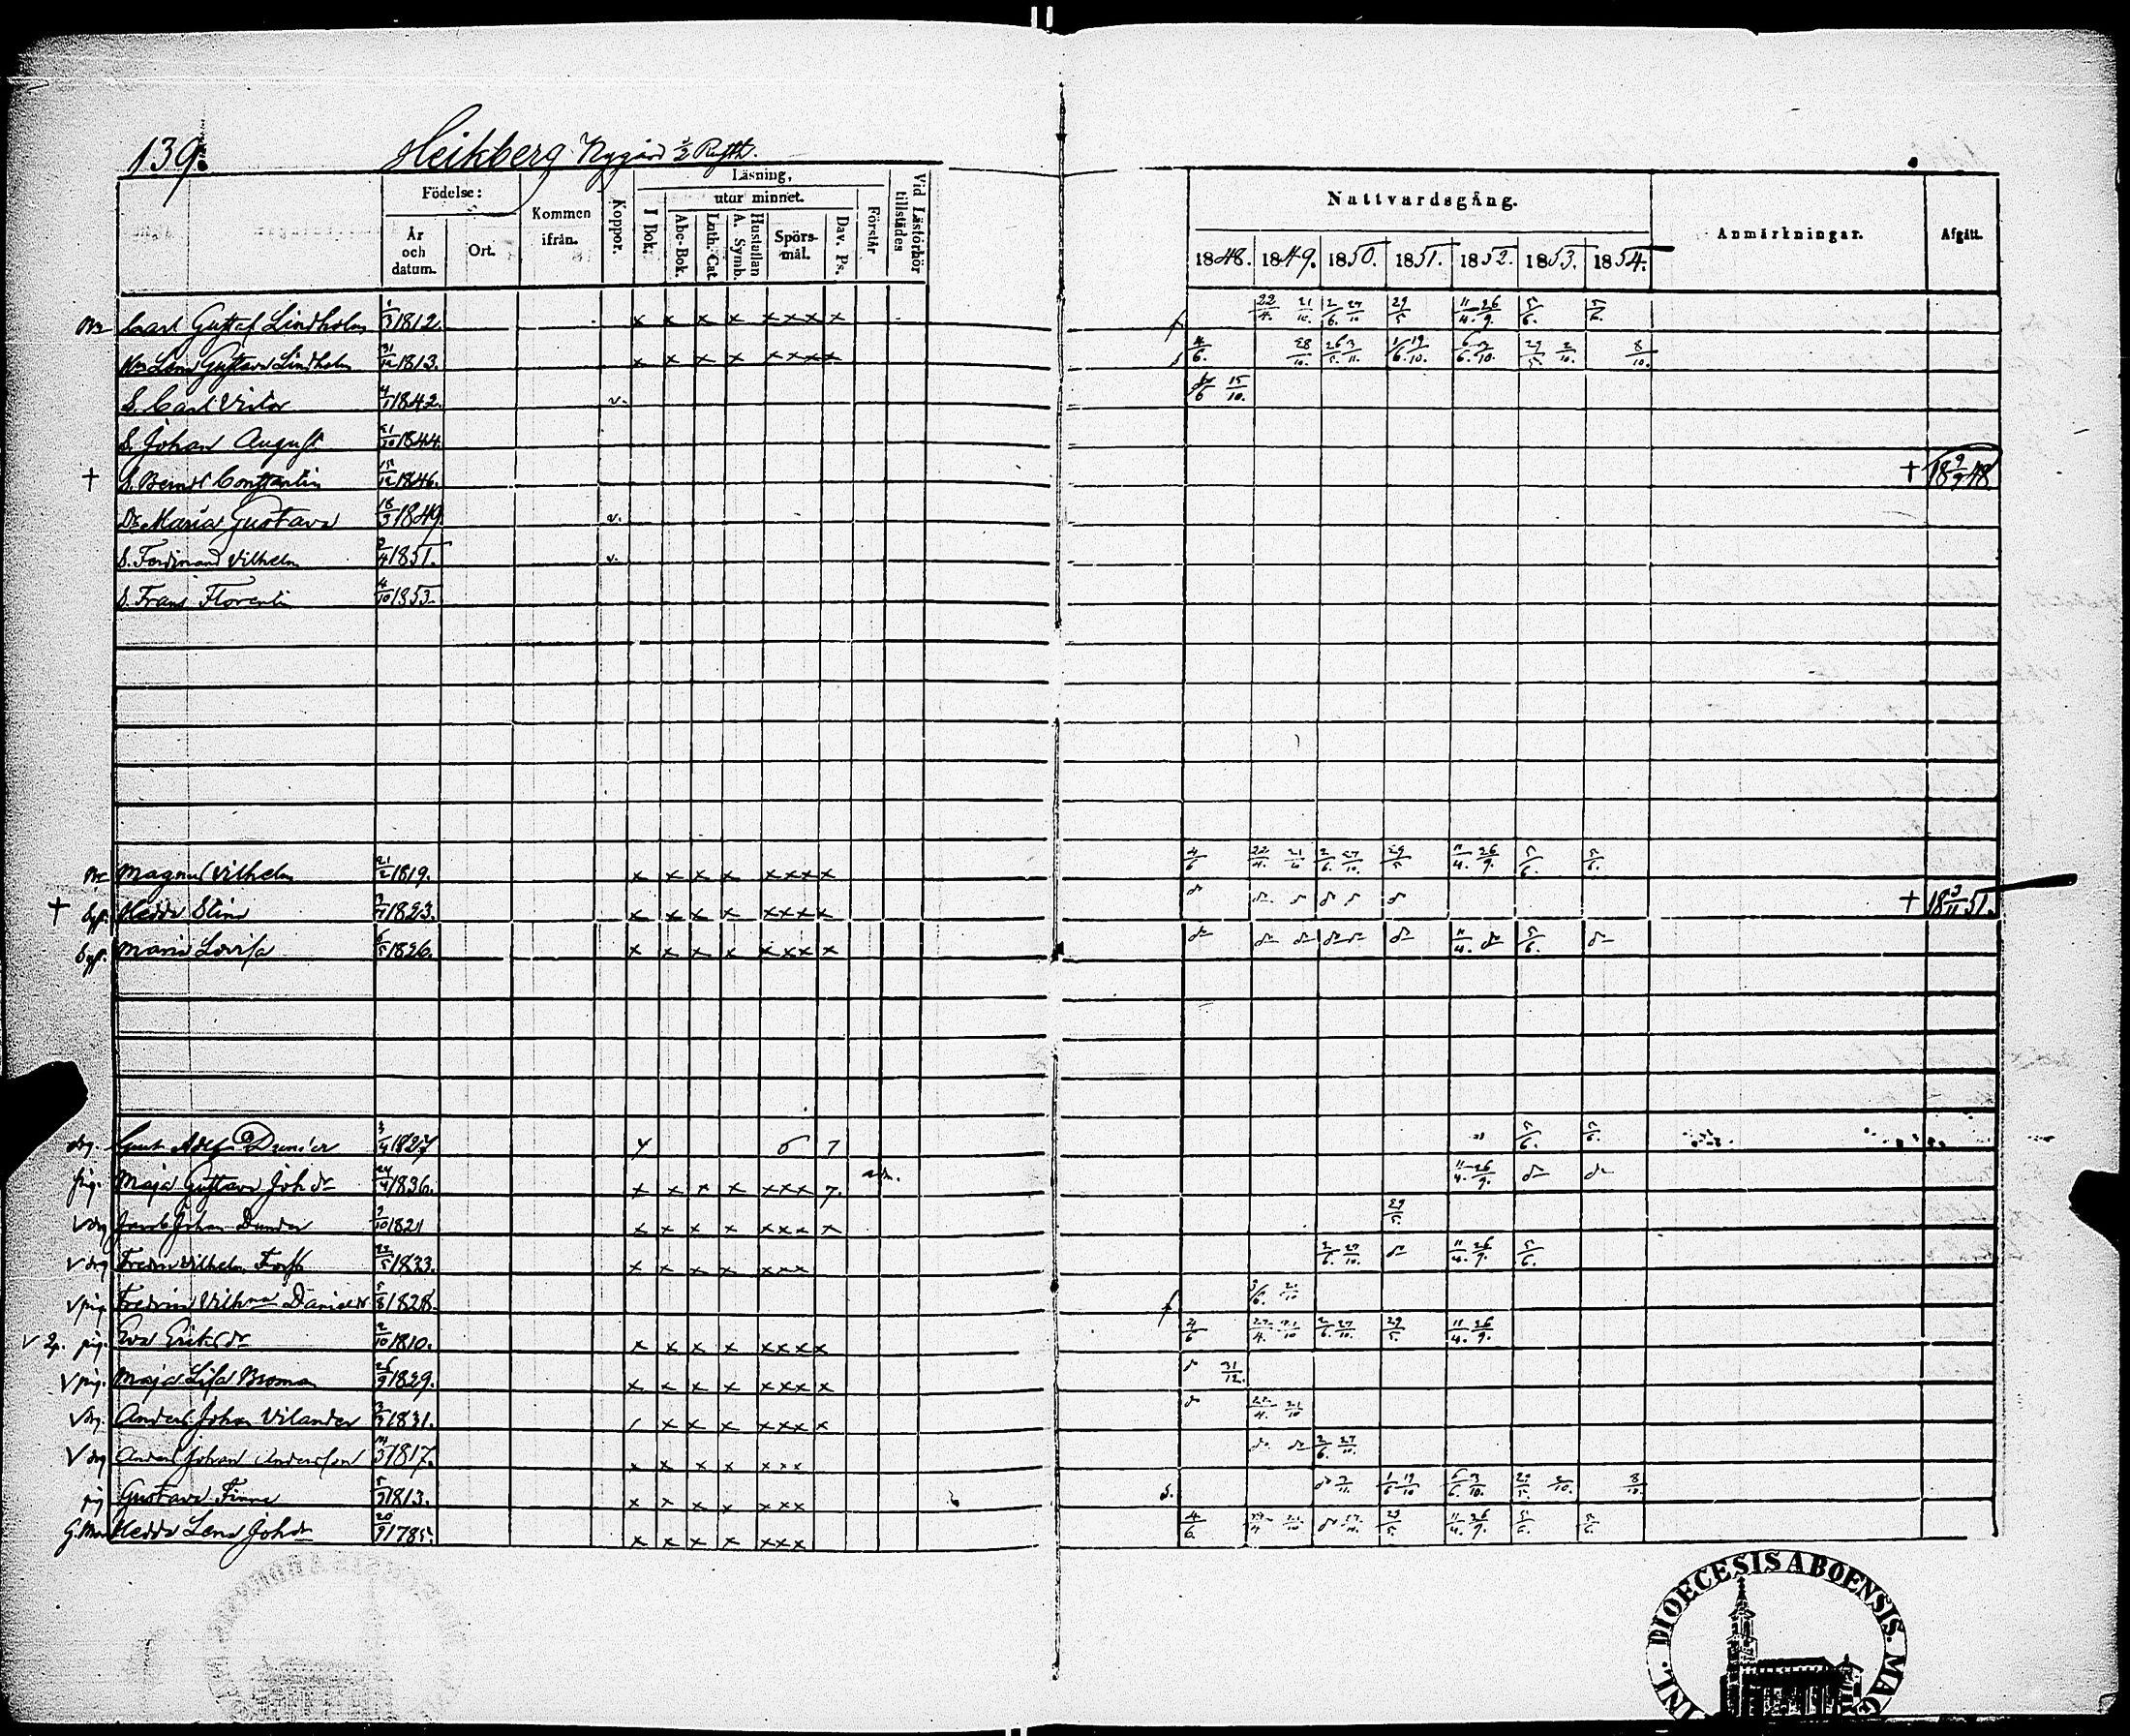 139.
Heikberg Nygård 1/2 Rusth.
Födelse:
År och datum.
Ort.
Kommen ifrån.
Koppor.
Läsning,
I Bok.
utur minnet.
Abc-Bok.
Luth. Cat.
Hustaflan A. Symb.
Spörs-mål.
Dav. Ps.
Förstår
Vid Läsförhör tillstädes
Nattvardsgång.
1848. 1849. 1850. 1851. 1852. 1853. 1854.
Anmärkningar.
Afgått.
Carl Gustaf Lindholm 1/3 1812. x x x x xxxx x 22/4. 21/10. 2/6. 27/10 29/5 11/4. 26/9. 5/6. 5/6.
Lena Gustava Lindholm 31/12 1813. x x x x xxxx 4/6. 28/10. 26/5. 3/11. 1/6. 19/10. 6/6. 3/10. 29/5. 2/10. 8/10.
S. Carl Victor 4/1 1842. v. 15/10.
S. Johan August 21/10 1844.
† S. Bernd Constantin 15/12 1846. † 18 9/9 48
Dr Maria Gustava 18/3 1849 v.
S. Ferdinand Vilhelm 2/4 1851. v.
S. Frans Florentin 4/10 1853.
Br Magnus Vilhelm 21/2 1819. x x x x xxxx 4/6 22/4. 2/6. 27/10. 29/5 11/4. 26/9. 5/6. 5/6.
† Syst. Hedda Stina 1823. x x x x xxxx † 18 3/11 51.
Syst. Maria Lovisa 6/5 1826. x x x x xxxx x 11/4. 5/6.
drg. Gust. Adolf 3/4 1827 7 5/6. 5/6.
pig. Maja Gustava Joh dr 24/4 1836. x x x x xxx 7. adm. 11/4. 26/9.
v drg Jacob Johan Dunder 9/10 1821 x x x x xxx x 29/5.
v drg Fredr. Vilhelm Forss 22/5 1833. x x x x xxx 2/6. 27/10. 11/4. 26/9. 5/6.
v pig. Fredrica Vilhna Daniels dr 5/8 1828. 21/10
v pig. Eva Eriks dr 2/10 1810. x x x x xxxx 4/6 22/4. 21/10 2/6. 27/10. 29/5. 11/4. 26/9.
v pig. Maja Lisa Broman 26/9 1829. x x x x xxx x 31/12.
v drg. Anders Johan Vilander 1831. x x x xxxx 22/4. 21/10
v drg Anders Johan Andersson 1817. x x x x xxx 2/6. 27/10.
pig Gustava Finne 5/9 1813. x x x x xxx 3/11. 1/6 19/10 6/6. 3/10. 29/5. 2/10. 8/10.
G. Mor Hedda Lena Joh dr 20/9 1785. x x x x xxx 4/6. 21/10 29/5. 11/4. 26/9. 5/6. 5/6.
DIOECESIS ABOENSIS. MAG